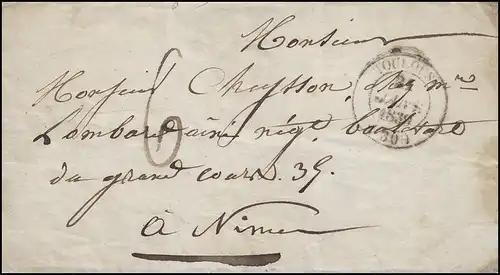 Monsieur
Monsieur Cheysson, chez mr
Lombard ainé négt. boulevart
du grand cours. 35.
à Nimes
6
TOULOUSE
(30)